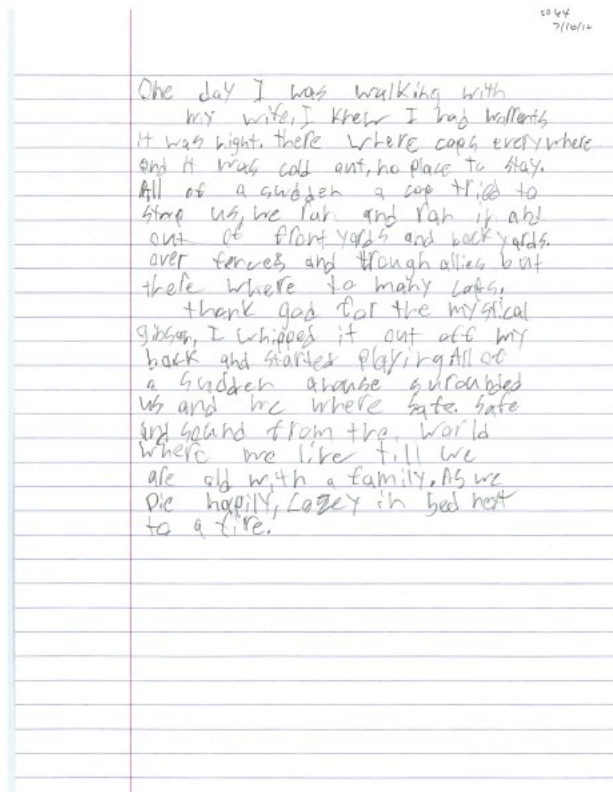 5044
7/10/12
One day I was walking with
my wife, I knew I had warrents
it was night. there where cops everywhere
and it was cold out, no place to stay.
All of a sudden a cop tried to
stop us, we ran and ran in and
out of front yards and back yards.
over fences and trough allies but
there where to many cops.
thank god for the mystical
gibson, I whipped it out off my
back and started playing All of
a sudden a house surounded
us and we where safe. safe
and sound from the world
where we live till we
are old with a family. As we
Die happily, Cozey in bed next
to a fire.